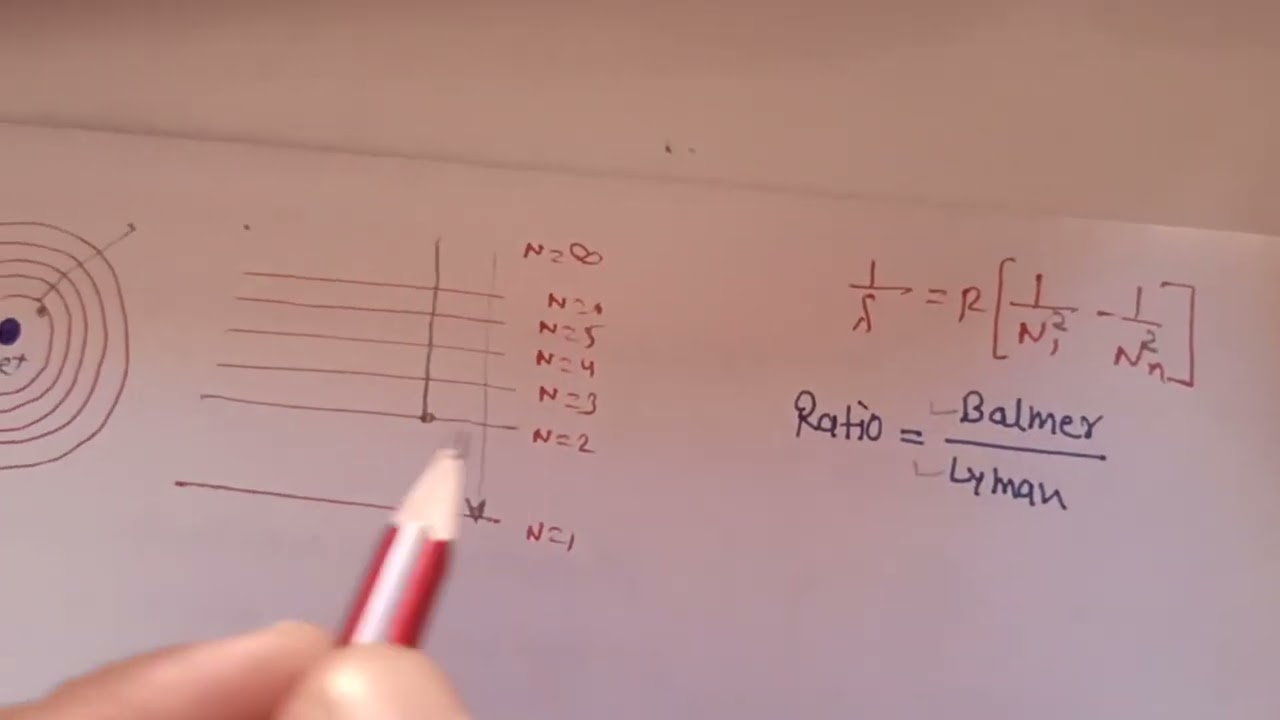 N=∞
N=5
N=4
N=3
N=2
N=1
e+
1/λ = R[1/N₁² - 1/Nₙ²]
Ratio = Balmer/Lyman